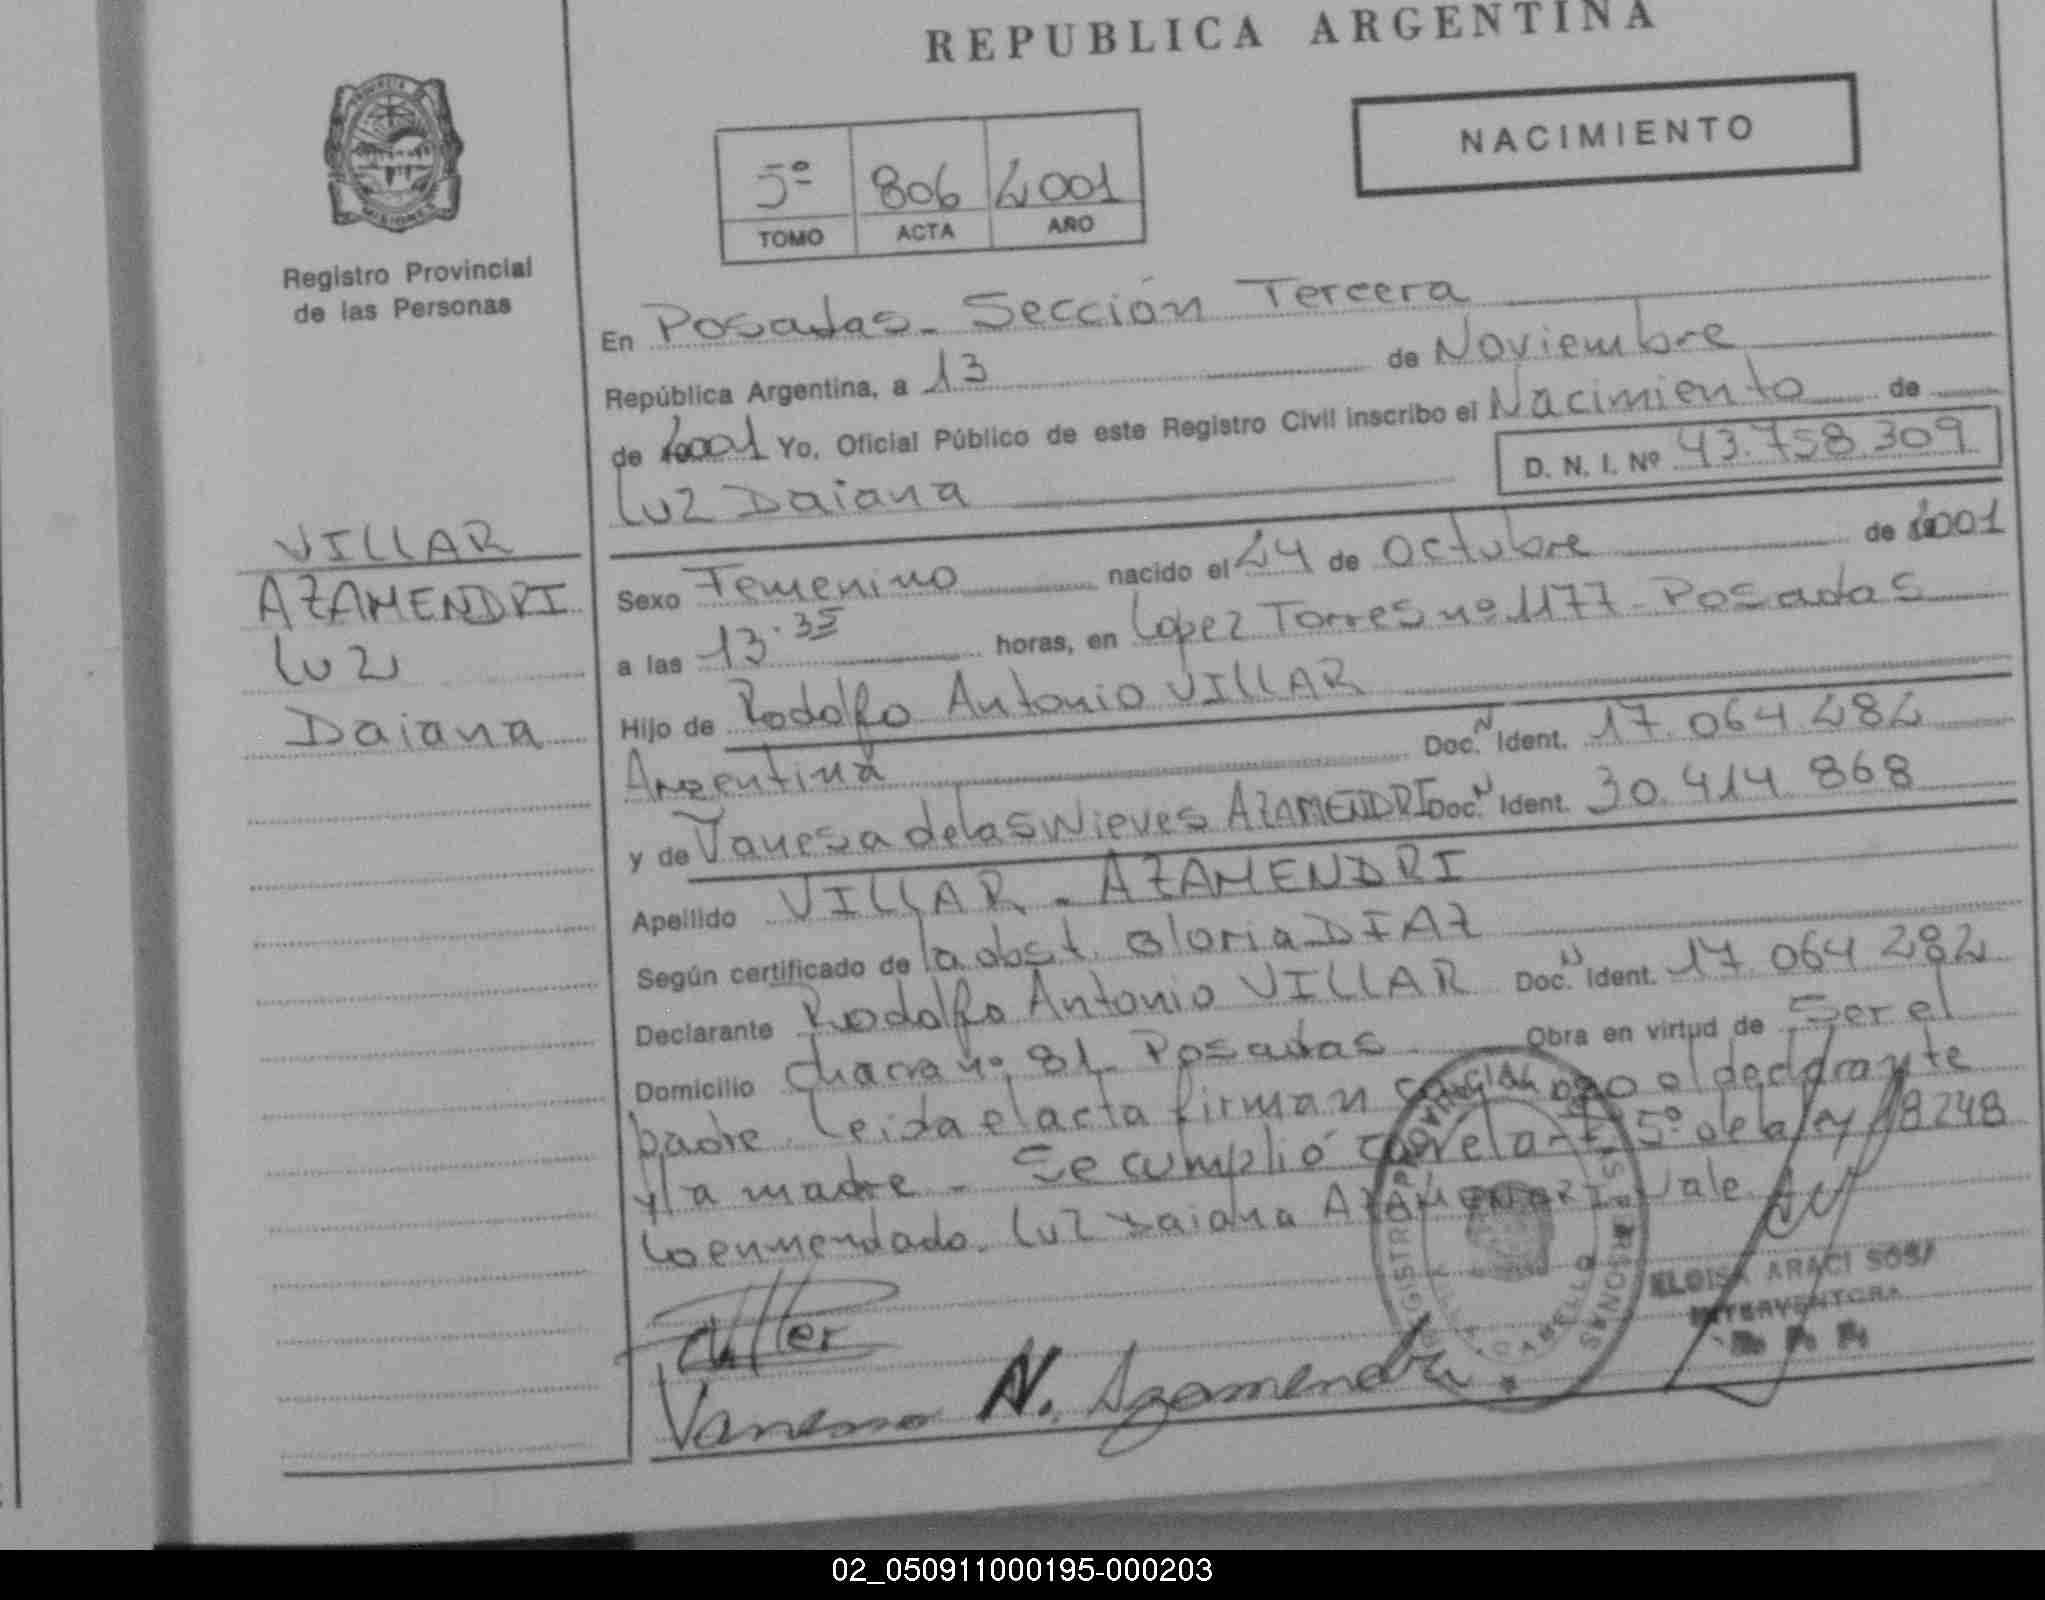 REPUBLICA ARGENTINA
NACIMIENTO
5º 806 2001
TOMO ACTA AÑO
PROVINCIA
MISIONES
Registro Provincial
de las Personas
VILLAR
AZAMENDRI
Luz
Daiana
En Posadas - Sección Tercera
República Argentina, a 13 de Noviembre
de 2001 Yo, Oficial Público de este Registro Civil inscribo el Nacimiento de
Luz Daiana D. N. I. Nº 43.758.309
Sexo Femenino nacido el 24 de Octubre de 2001
a las 13.35 horas, en Lopez Torres nº 1177 - Posadas
Hijo de Rodolfo Antonio VILLAR
Argentina Doc. N Ident. 17.064.282
y de Vanesa de las Nieves AZAMENDRI Doc. N Ident. 30.414.868
Apellido VILLAR - AZAMENDRI
Según certificado de la obst. Gloria DIAZ
Declarante Rodolfo Antonio VILLAR Doc. N Ident. 17.064.282
Domicilio Chacra nº 81 - Posadas Obra en virtud de Ser el
padre. Leida el acta firman conmigo el declarante
y la madre - Se cumplió con el art. 5º de la ley 18248
Lo enmendado. Luz Daiana AZAMENDRI Vale
REGISTRO PROVINCIAL PERSONAS
VILLA CABELLO
ELOISA ARACI SOSA
INTERVENTORA
Vanessa N. Azamendri
02_050911000195-000203